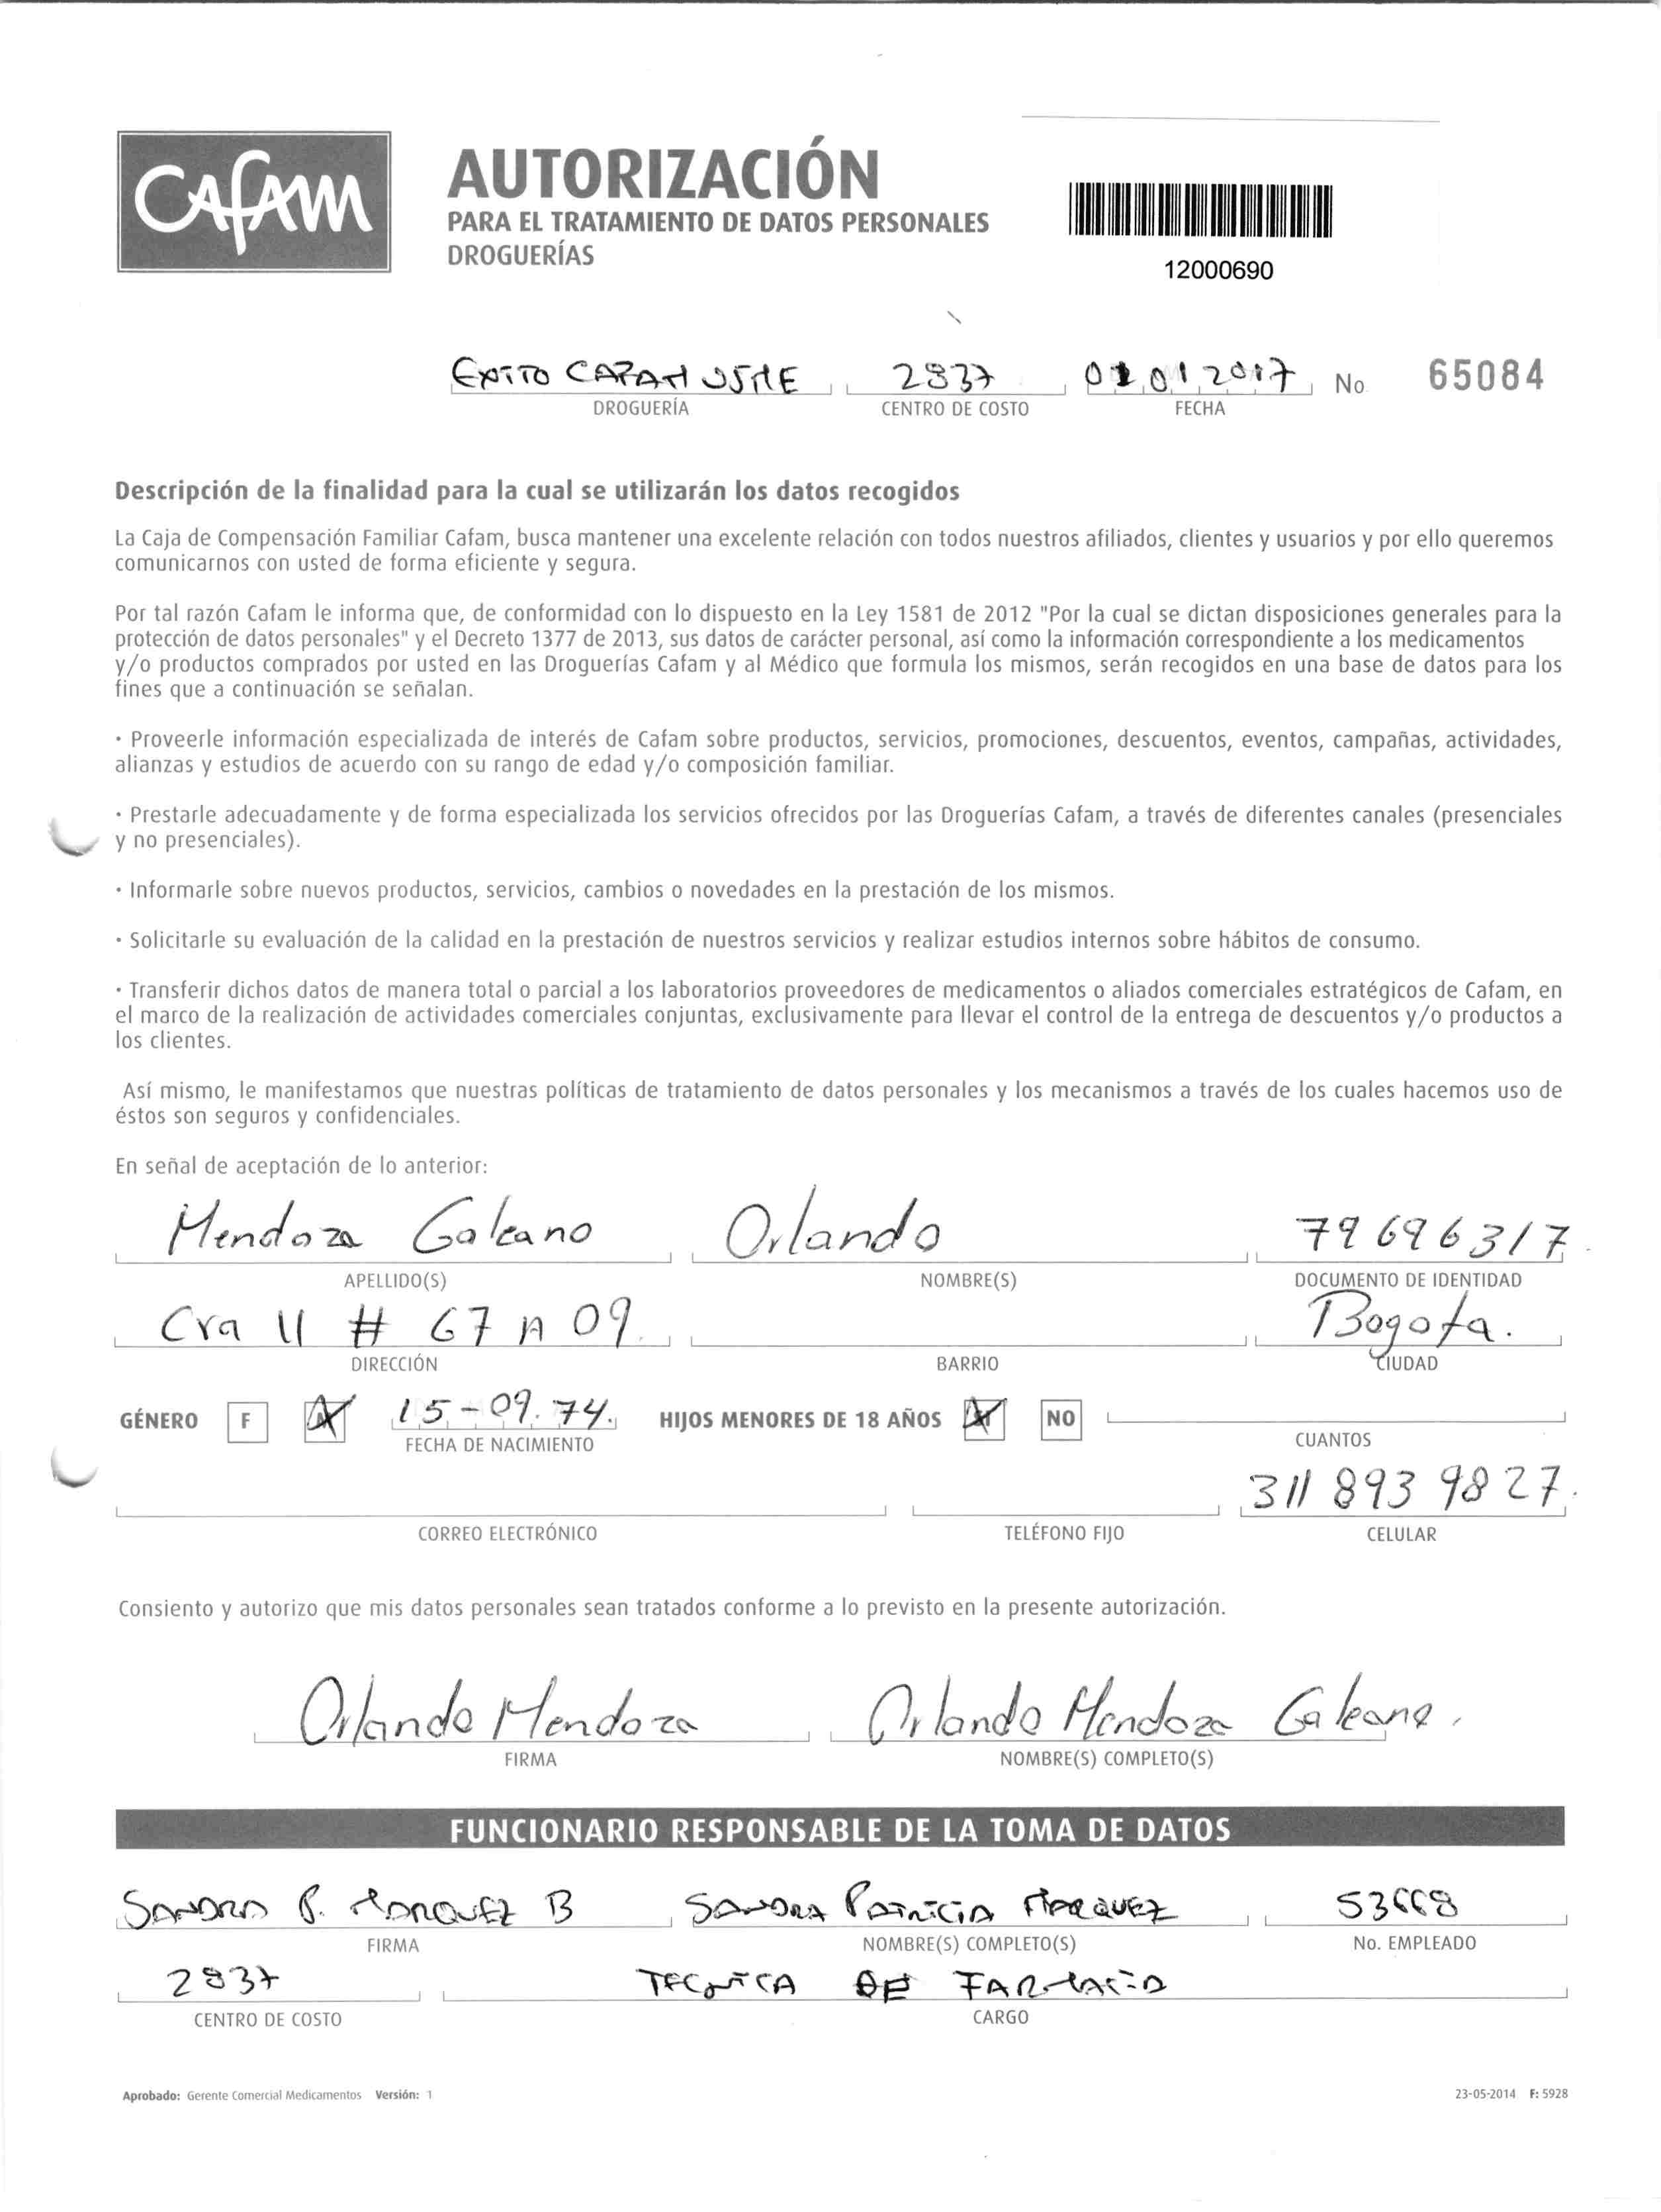 Cafam
AUTORIZACIÓN
PARA EL TRATAMIENTO DE DATOS PERSONALES
DROGUERÍAS
12000690
EXITO CAFAM USME 2837 01 01 2017 No 65084
DROGUERÍA CENTRO DE COSTO FECHA
Descripción de la finalidad para la cual se utilizarán los datos recogidos
La Caja de Compensación Familiar Cafam, busca mantener una excelente relación con todos nuestros afiliados, clientes y usuarios y por ello queremos
comunicarnos con usted de forma eficiente y segura.
Por tal razón Cafam le informa que, de conformidad con lo dispuesto en la Ley 1581 de 2012 "Por la cual se dictan disposiciones generales para la
protección de datos personales" y el Decreto 1377 de 2013, sus datos de carácter personal, así como la información correspondiente a los medicamentos
y/o productos comprados por usted en las Droguerías Cafam y al Médico que formula los mismos, serán recogidos en una base de datos para los
fines que a continuación se señalan.
· Proveerle información especializada de interés de Cafam sobre productos, servicios, promociones, descuentos, eventos, campañas, actividades,
alianzas y estudios de acuerdo con su rango de edad y/o composición familiar.
· Prestarle adecuadamente y de forma especializada los servicios ofrecidos por las Droguerías Cafam, a través de diferentes canales (presenciales
y no presenciales).
· Informarle sobre nuevos productos, servicios, cambios o novedades en la prestación de los mismos.
· Solicitarle su evaluación de la calidad en la prestación de nuestros servicios y realizar estudios internos sobre hábitos de consumo.
· Transferir dichos datos de manera total o parcial a los laboratorios proveedores de medicamentos o aliados comerciales estratégicos de Cafam, en
el marco de la realización de actividades comerciales conjuntas, exclusivamente para llevar el control de la entrega de descuentos y/o productos a
los clientes.
Así mismo, le manifestamos que nuestras políticas de tratamiento de datos personales y los mecanismos a través de los cuales hacemos uso de
éstos son seguros y confidenciales.
En señal de aceptación de lo anterior:
Mendoza Galeano Orlando 79696317
APELLIDO(S) NOMBRE(S) DOCUMENTO DE IDENTIDAD
Cra 11 # 67 A 09. Bogota.
DIRECCIÓN BARRIO CIUDAD
GÉNERO F 15-09.74. HIJOS MENORES DE 18 AÑOS NO
FECHA DE NACIMIENTO CUANTOS
311 893 98 27.
CORREO ELECTRÓNICO TELÉFONO FIJO CELULAR
Consiento y autorizo que mis datos personales sean tratados conforme a lo previsto en la presente autorización.
Orlando Mendoza Orlando Mendoza Galeano.
FIRMA NOMBRE(S) COMPLETO(S)
FUNCIONARIO RESPONSABLE DE LA TOMA DE DATOS
SANDRA P. MARQUEZ B SANDRA PATRICIA MARQUEZ 53668
FIRMA NOMBRE(S) COMPLETO(S) No. EMPLEADO
2837 TECNICA DE FARMACIA
CENTRO DE COSTO CARGO
Aprobado: Gerente Comercial Medicamentos Versión: 1 23-05-2014 F: 5928